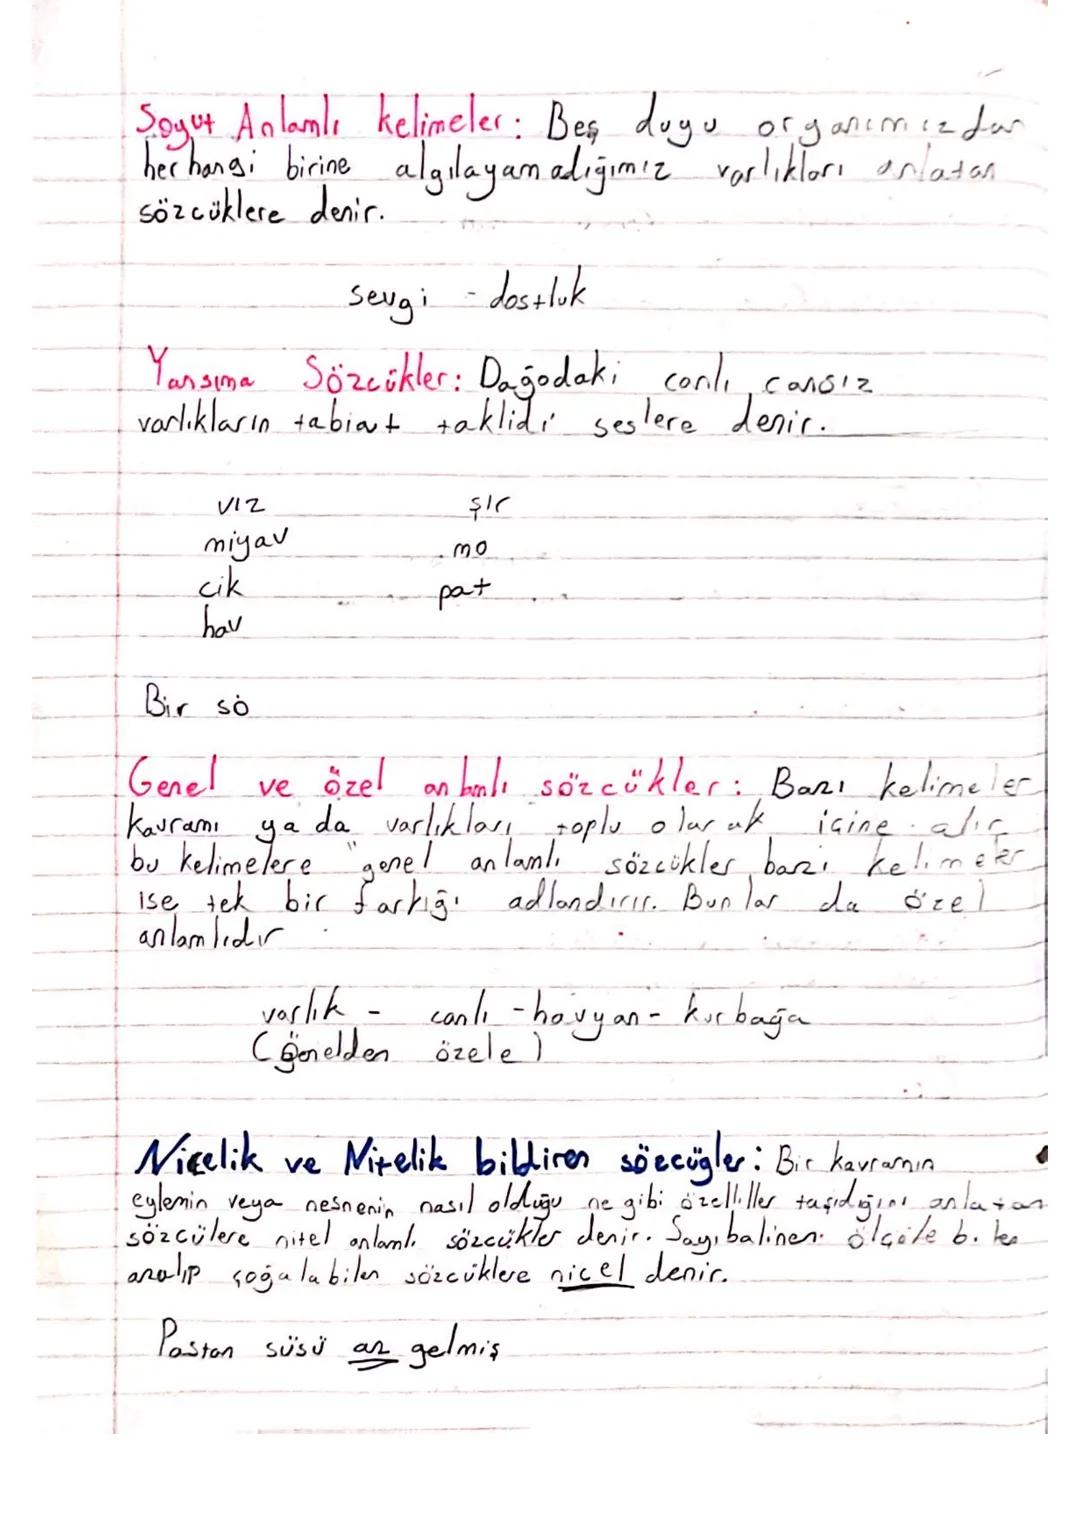 Soyut Anlamlı kelimeler: Beş duyu organımızdan
herhangi birine algılayamadığımız varlıkları anlatan
sözcüklere denir.
sevgi - dostluk
Yansıma Sözcükler: Dağodaki canlı, cansız
varlıkların tabiat taklidi seslere denir.
vız şır
miyav mo
cik pat
hav
Bir sö
Genel ve özel anlamlı sözcükler: Bazı kelimeler
kavramı ya da varlıkları toplu olarak içine alır
bu kelimelere "genel anlamlı sözcükler, bazı kelimeler
ise tek bir farkığı adlandırır. Bunlar da özel
anlamlıdır
varlık - canlı - hayvan - kurbağa
(genelden özele)
Nicelik ve Nitelik bildiren sözcügler: Bir kavramın
eylemin veya nesnenin nasıl olduğu ne gibi özelliller taşıdığını anlatan
sözcülere nitel anlamlı sözcükler denir. Sayı
azalıp çoğalabilen sözcüklere nicel denir.
Pastan süsü az gelmiş